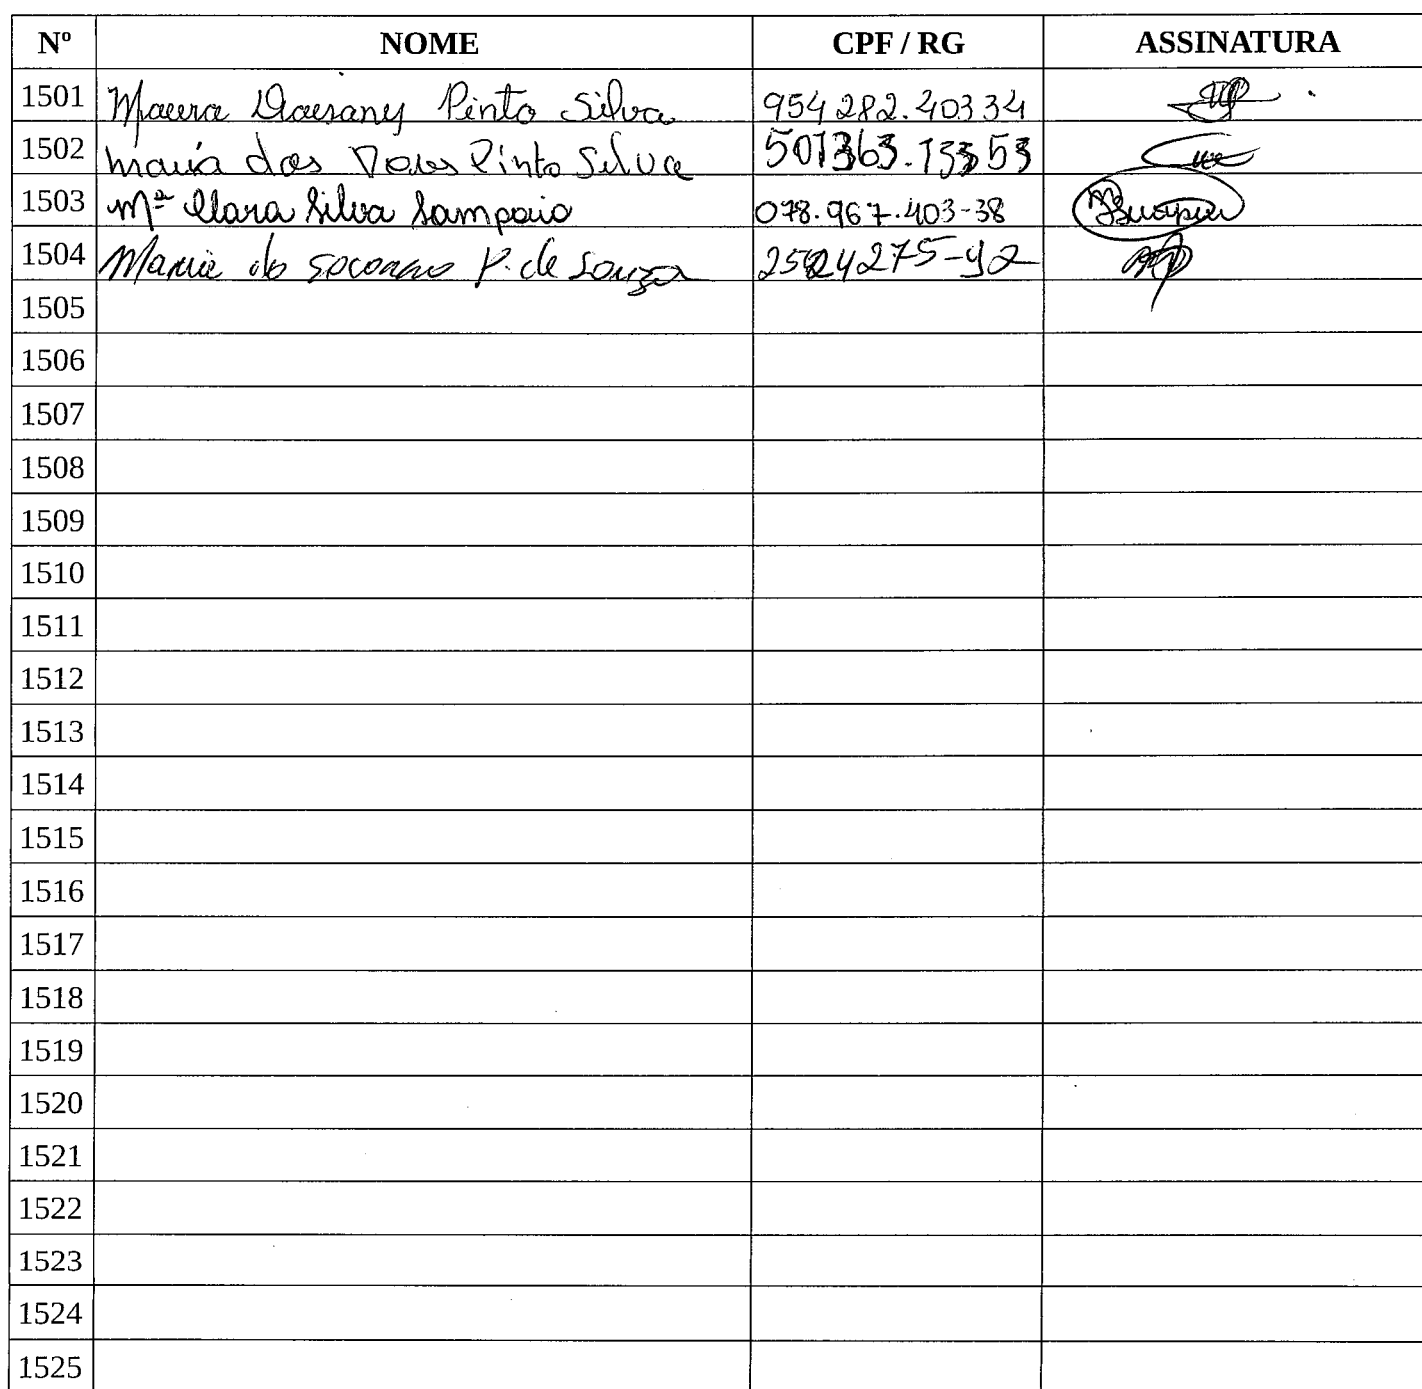 Nº NOME CPF / RG ASSINATURA
1501 Pinto Silva 954282.40334
1502 maria das Pinto Silva
1503 Mª Clara Silva Sampaio 078.967.403-38
1504 Maria do socorro P. de Souza
1505
1506
1507
1508
1509
1510
1511
1512
1513
1514
1515
1516
1517
1518
1519
1520
1521
1522
1523
1524
1525